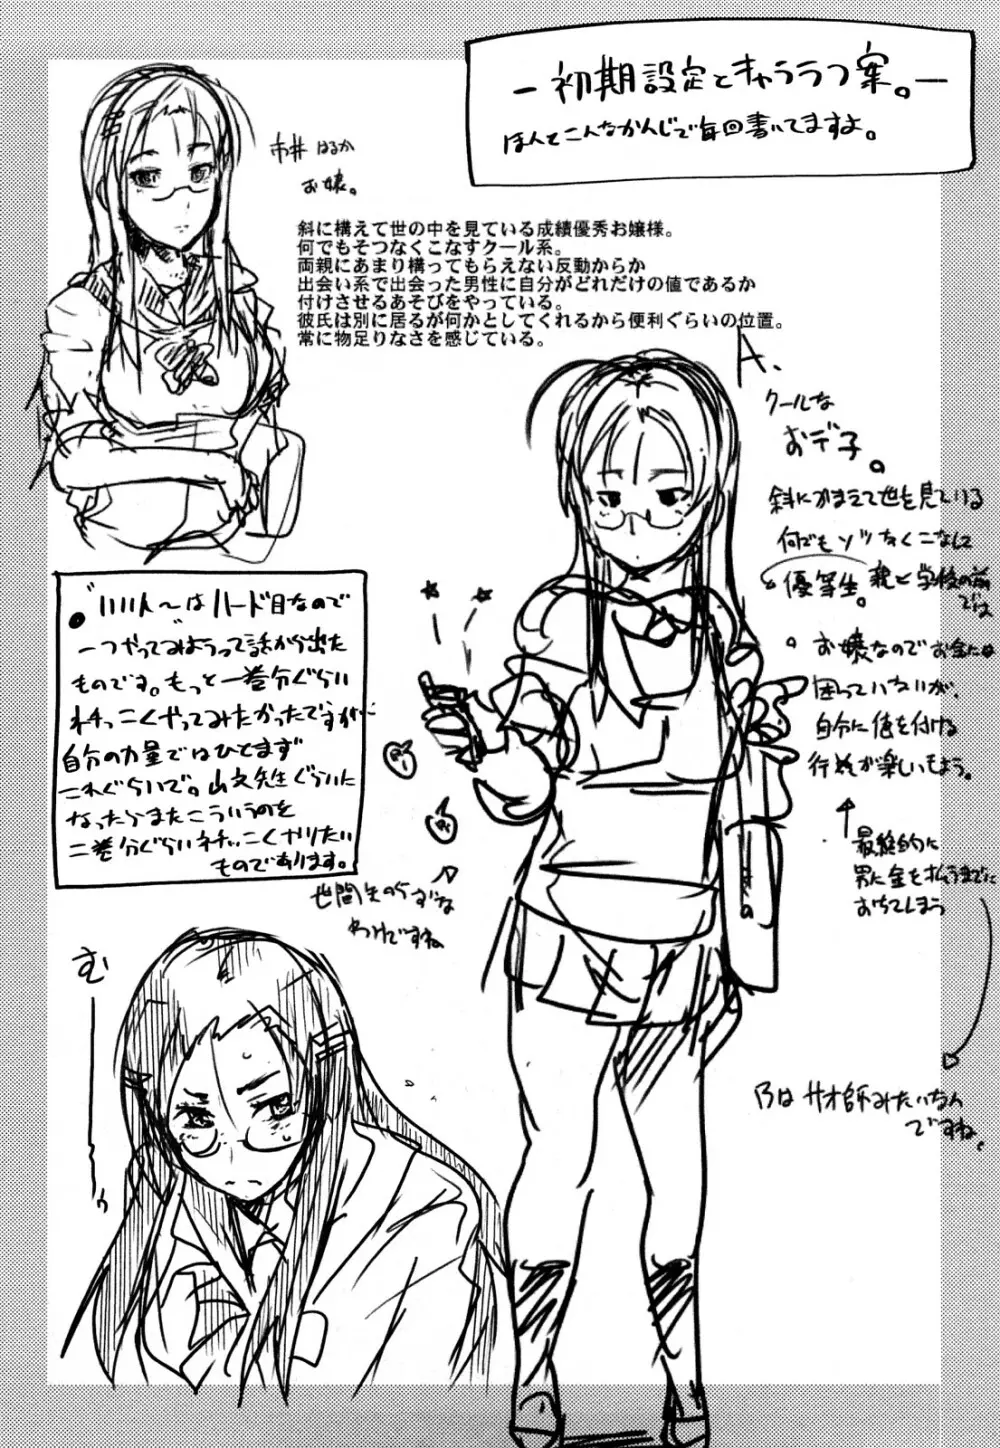 －初期設定とキャララフ案。－
ほんとこんなかんじで毎回書いてますよ。
市井 はるか
お嬢。
斜に構えて世の中を見ている成績優秀お嬢様。
何でもそつなくこなすクール系。
両親にあまり構ってもらえない反動からか
出会い系で出会った男性に自分がどれだけの値であるか
付けさせるあそびをやっている。
彼氏は別に居るが何かとしてくれるから便利ぐらいの位置。
常に物足りなさを感じている。
A.
クールな
おデ子。
斜にかまえて世を見ている
何でもソツなくこなして
優等生。親と学校の前
では
。お嬢なのでお金には
困っていないが、
自分に値を付ける
行為が楽しいもよう。
最終的に
男に金を払うまでに
おちてしまう
Bは サオ師みたいなもん
ですね。
。"いいひと〜はハード目なので
一つやってみようって話から出た
ものです。もっと一巻分ぐらい
ネチっこくやってみたかったですが…
自分の力量ではひとまず
これぐらいで。山文先生ぐらいに
なったらまたこういうのを
二巻分ぐらいネチっこくやりたい
ものであります。
世間知らずな
わけですね
む
ぅ